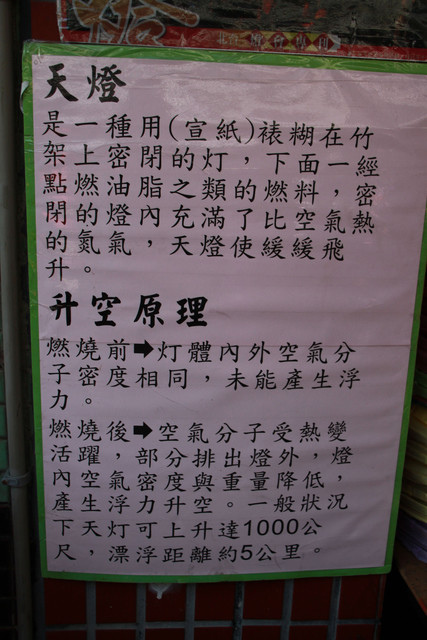 天燈
是一種用(宣紙)裱糊在竹
架上密閉的灯，下面一經
點燃油脂之類的燃料，密
閉的燈內充滿了比空氣熱
的氮氣，天燈使緩緩飛
升。
升空原理
燃燒前➡灯體內外空氣分
子密度相同，未能產生浮
力。
燃燒後➡空氣分子受熱變
活躍，部分排出燈外，燈
內空氣密度與重量降低，
產生浮力升空。一般狀況
下天灯可上升達1000公
尺，漂浮距離約5公里。